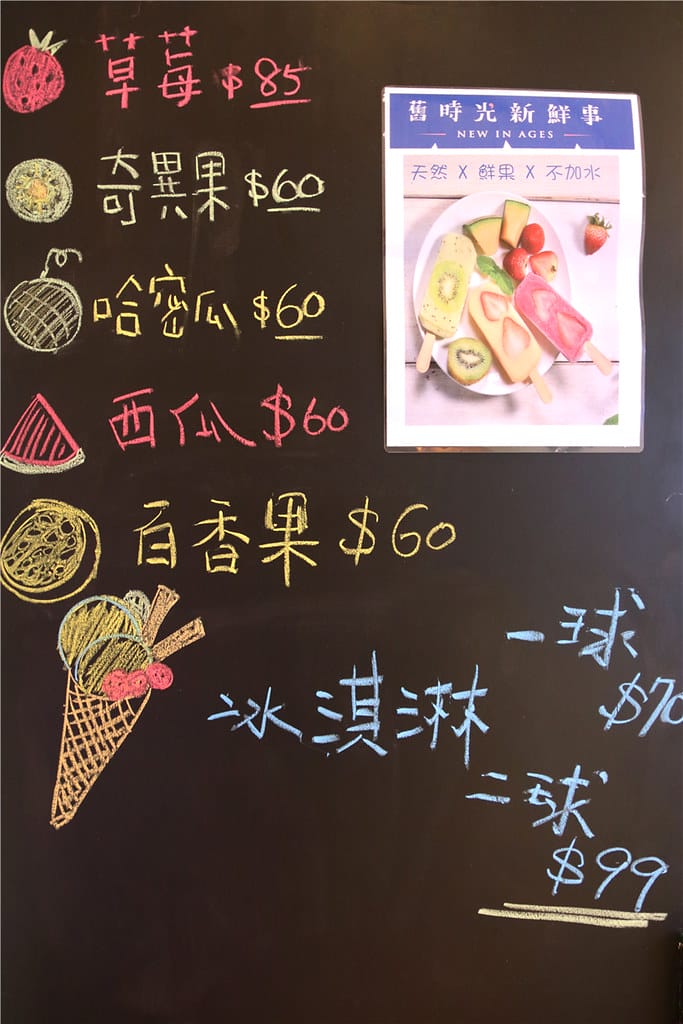 草莓 $85
奇異果 $60
哈密瓜 $60
西瓜 $60
百香果 $60
舊時光新鮮事
NEW IN AGES
天然 X 鮮果 X 不加水
冰淇淋
一球
$70
二球
$99